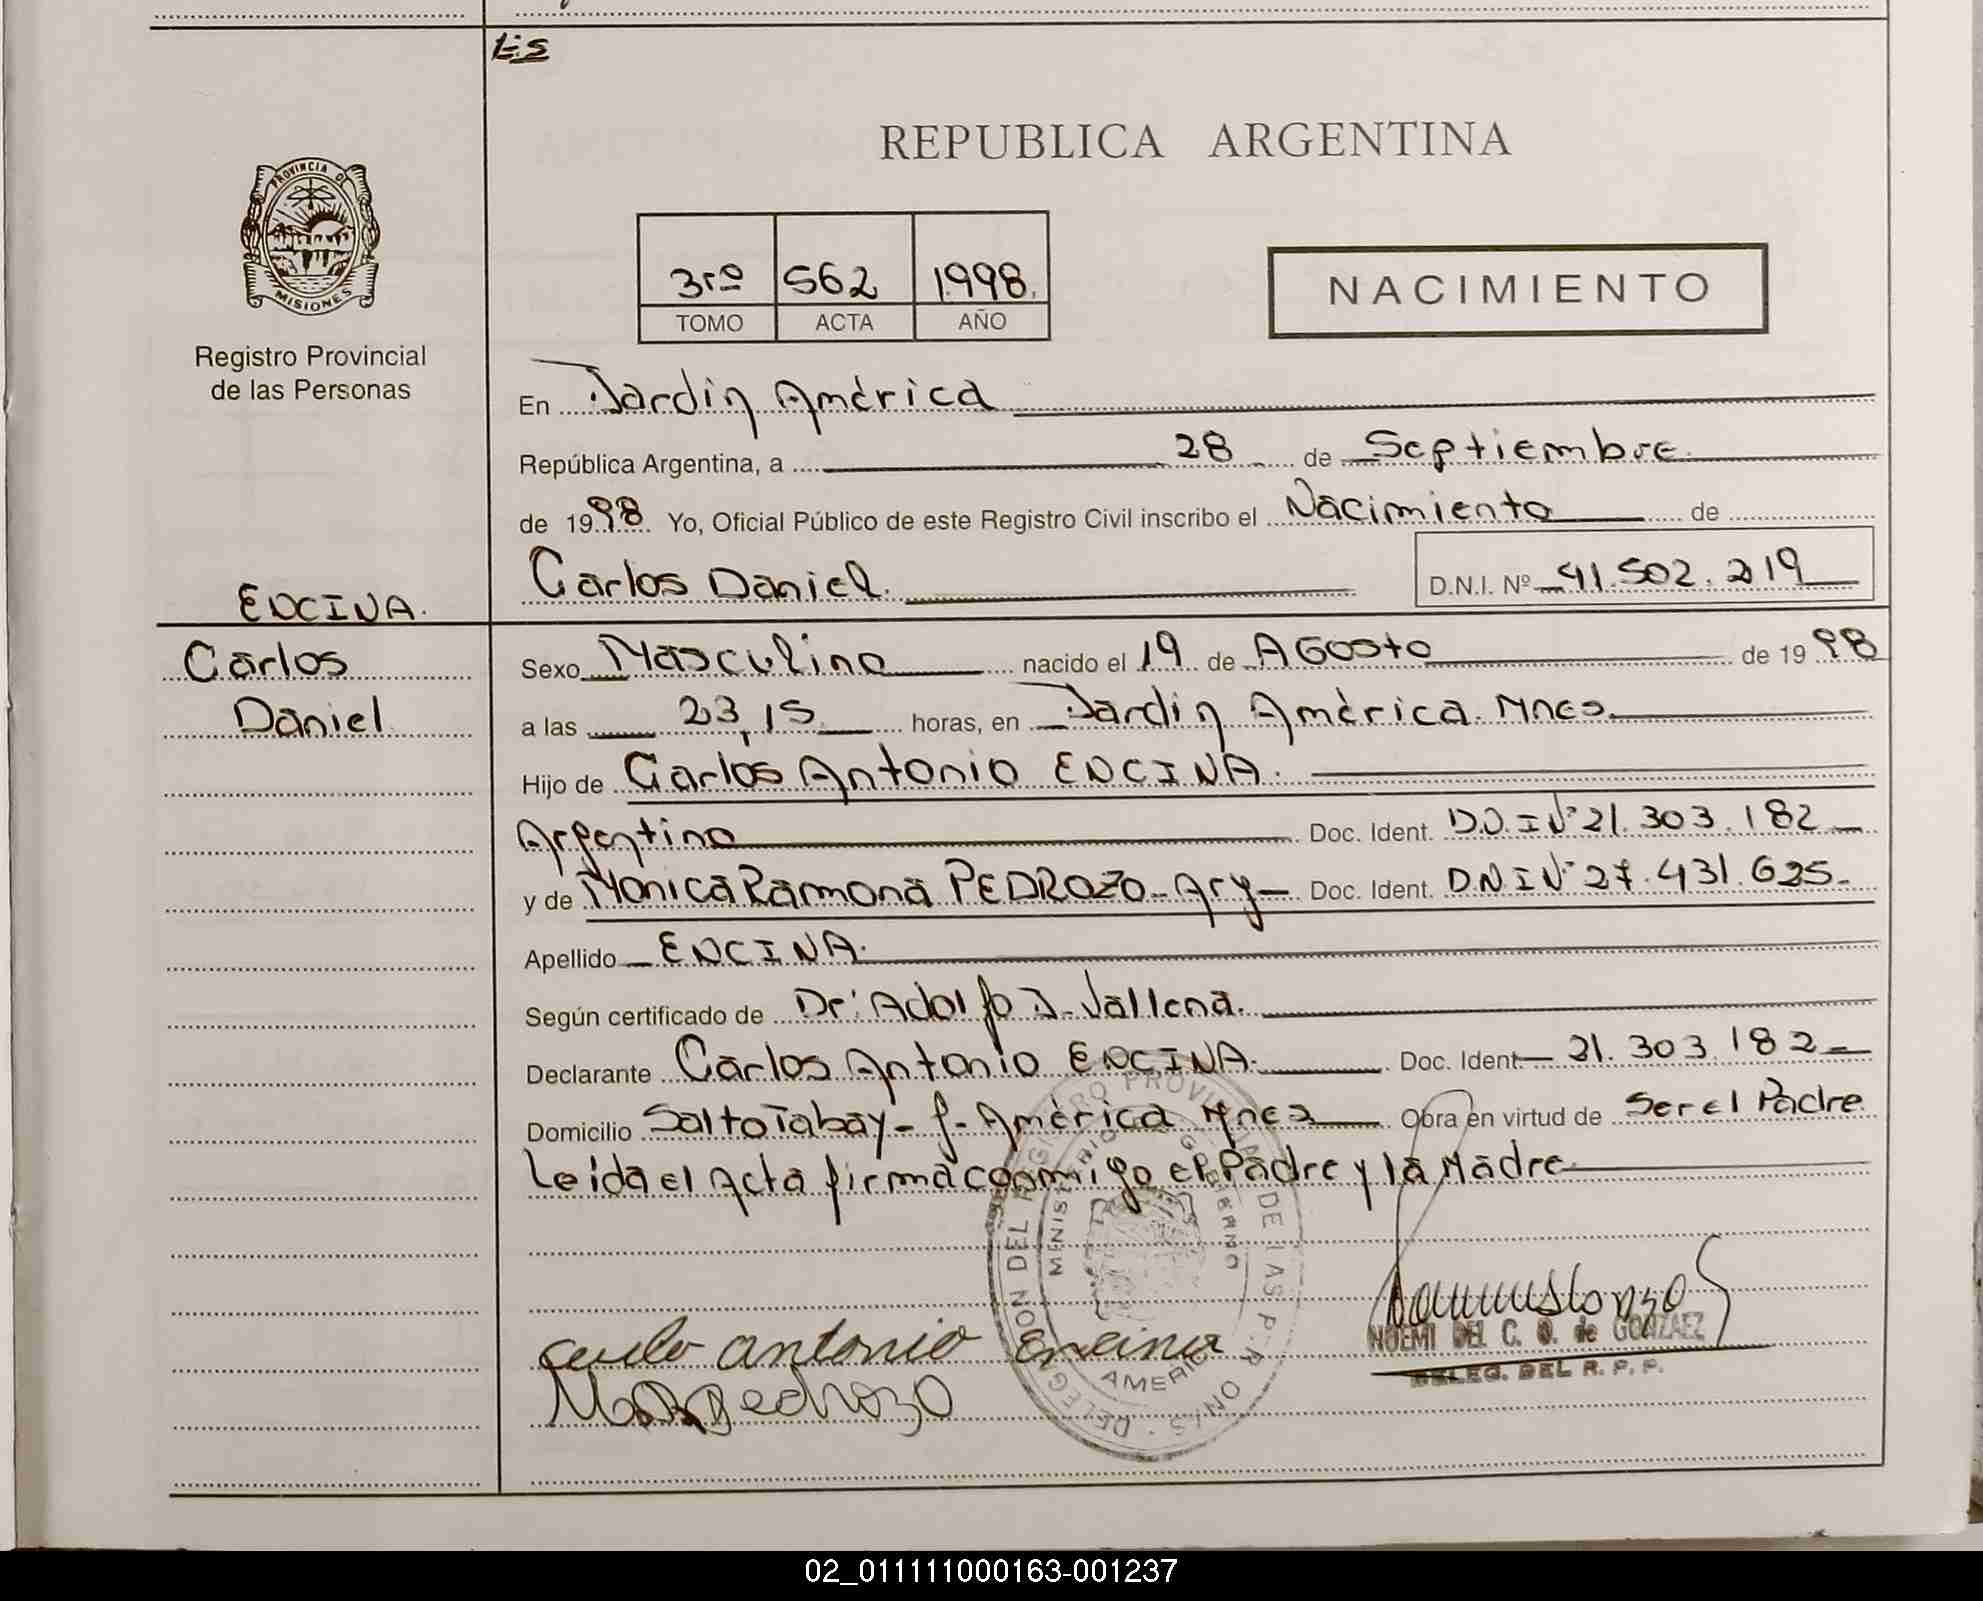 Es
REPUBLICA ARGENTINA
PROVINCIA DE
MISIONES
3ro 562 1998.
TOMO ACTA AÑO
NACIMIENTO
Registro Provincial
de las Personas
En Jardin América
República Argentina, a 28 de Septiembre
de 1998 Yo, Oficial Público de este Registro Civil inscribo el Nacimiento de
Carlos Daniel. D.N.I. Nº 41.502.219
ENCINA.
Carlos
Daniel
Sexo Masculino nacido el 19 de AGosto de 1998
a las 23,15 horas, en Jardin América. Mnes.
Hijo de Carlos Antonio ENCINA.
Argentino Doc. Ident. D.N.I Nº 21.303.182
y de Monica Ramona PEDROZO - Arg Doc. Ident. D.N.I Nº 27.431.625.
Apellido ENCINA.
Según certificado de Dr: Adolfo D. Vallena.
Declarante Carlos Antonio ENCINA. Doc. Ident. 21.303.182
Domicilio Salto Tabay - J. América Mnes Obra en virtud de Ser el Padre
Leida el Acta firma conmigo el Padre y la Madre
DELEGACION DEL REGISTRO PROVINCIAL DE LAS PERSONAS
MINISTERIO GOBIERNO
AMERICA
antonio Encina
pedrozo
NOEMI DEL C. O. de GONZALEZ
DELEG. DEL R. P. P.
02_011111000163-001237